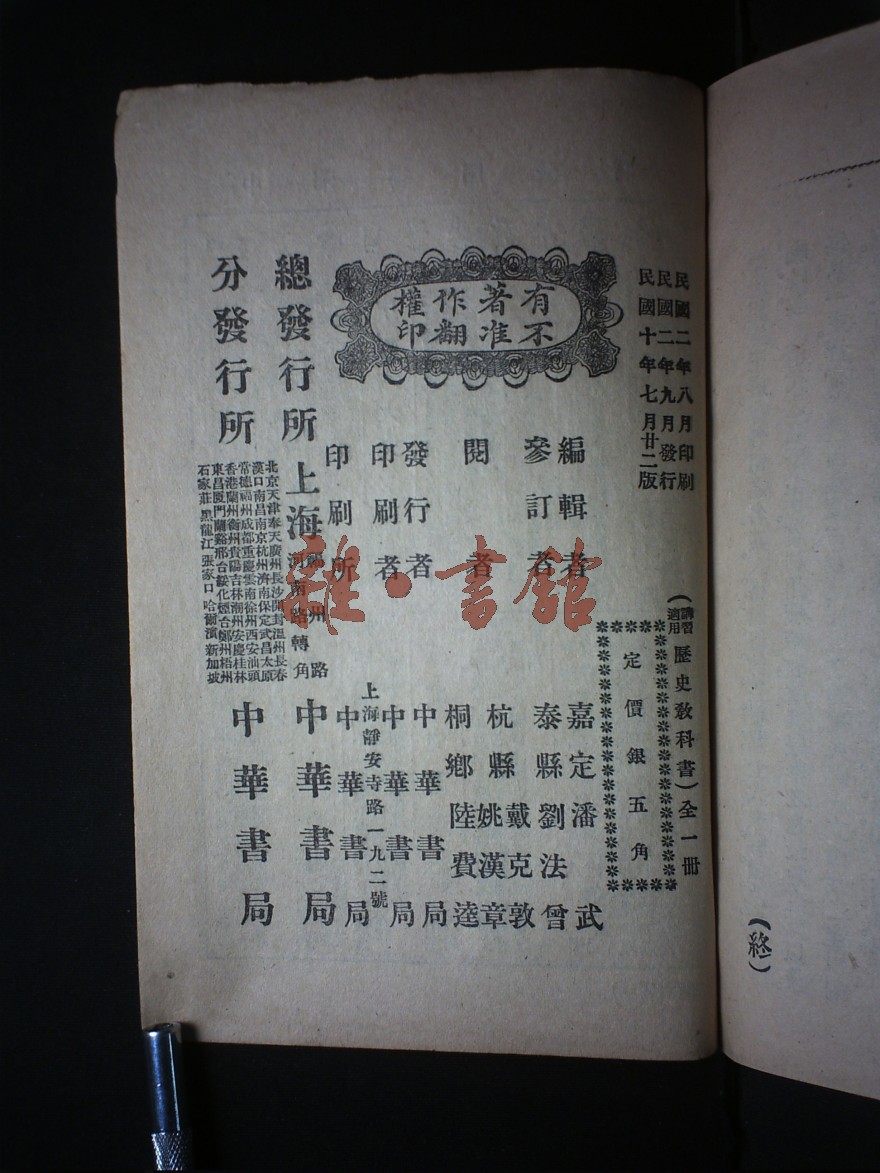 民國二年八月印刷
民國二年九月發行
民國十年七月廿二版
(講習適用歷史教科書)全一冊
定價銀五角
有著作權
不准翻印
編輯者 嘉定潘武
參訂者 泰縣劉法曾
閱者 杭縣戴克敦
杭縣姚漢章
桐鄉陸費逵
發行者 中華書局
印刷者 中華書局
印刷所 上海靜安寺路一九二號 中華書局
總發行所 上海 河南路轉角 中華書局
分發行所 中華書局
北京天津奉天廣州長沙開封溫州長春
漢口南昌南京杭州濟南保定武昌太原
常德福州成都重慶雲南徐州西安汕頭
香港蘭州衡州貴陽吉林潮州安慶桂林
東昌廈門蘭谿邢台綏化煙台鄭州梧州
石家莊黑龍江張家口哈爾濱新加坡
(終)
雜·書館